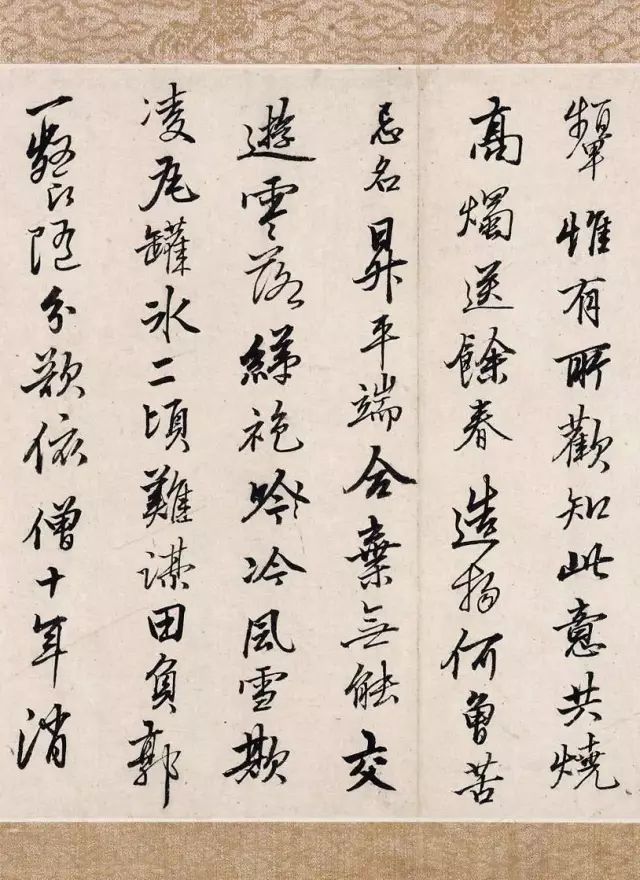 顰惟有所歡知此意共燒
高燭送餘春造物何曾苦
忌名昇平端合棄無能交
遊零落綈袍吟冷風雪欺
凌瓦罐冰二頃難謀田負郭
一餐隨分欲依僧十年消